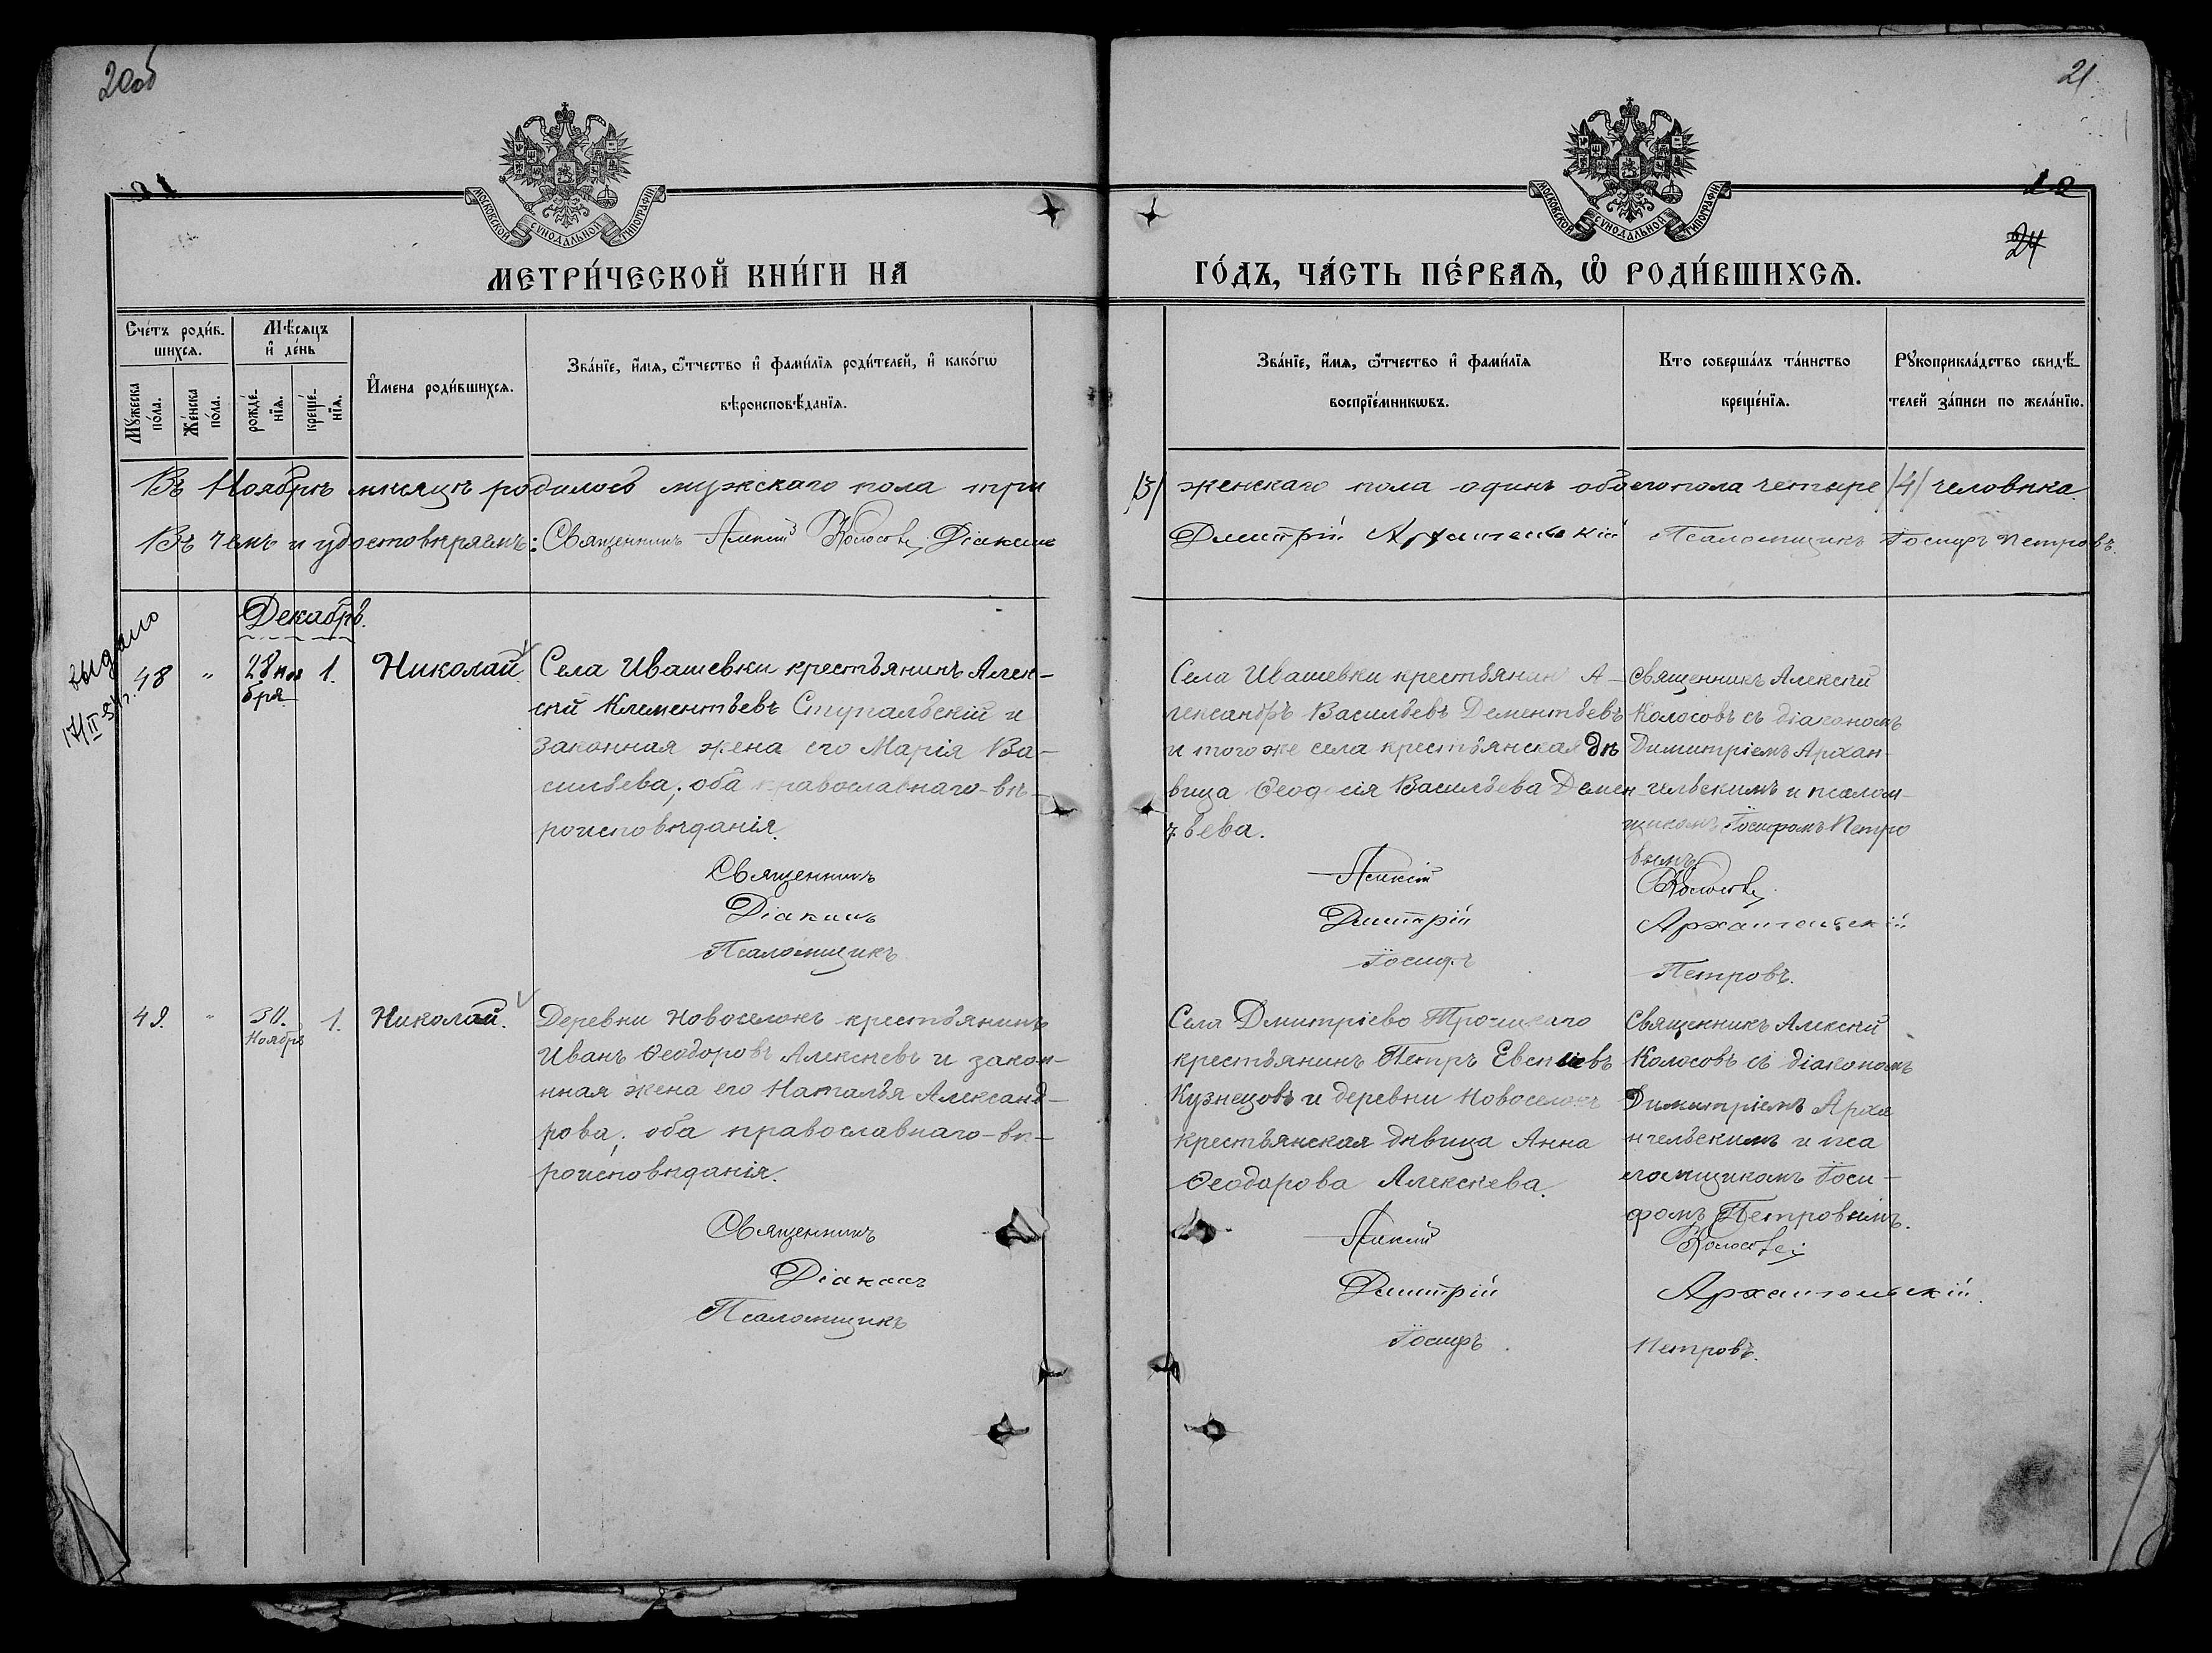 20об
21
МОСКОВСКОЙ СѴНОДАЛЬНОЙ ТИПОГРАФІИ
МОСКОВСКОЙ СѴНОДАЛЬНОЙ ТИПОГРАФІИ
24
МЕТРИ́ЧЕСКОЙ КНИ́ГИ НА
ГО́ДЪ, ЧА́СТЬ ПЕ́РВАѦ, Ѡ҆ РОДИ́ВШИХСѦ.
Сче́тъ роди́в-
шихсѧ.
Мꙋжеска по́ла.
Же́нска по́ла.
Мѣ́сѧцъ
и҆ де́нь
рожде́-нїѧ.
креще́-нїѧ.
И҆мена роди́вшихсѧ.
Зва́нїе, и҆́мѧ, ѻ҆́тчество и҆ фами́лїѧ роди́телей, и҆ како́гѡ
вѣроисповѣ́данїѧ.
Зва́нїе, и҆́мѧ, ѻ҆́тчество и҆ фами́лїѧ
воспрїе́мникѡвъ.
Кто соверша́лъ та́инство
креще́нїѧ.
Рꙋкоприкла́дство свидѣ́-
телей за́писи по жела́нїю.
Въ Ноябрѣ мѣсяцѣ родилось мужскаго пола три /3/ женскаго пола одинъ обоего пола четыре /4/ человѣка
Въ чемъ и удостовѣряемъ: Священникъ Алексій Колосовъ, Діаконъ Дмитрій Архангельскій Псаломщикъ Іосифъ Петровъ.
Декабрь.
выдано
17/II
48
"
28 но
бря
1.
Николай
Села Ивашевки крестьянинъ Алек-
сѣй Клементьевъ Ступальскій и
законная жена его Марія Ва-
сильева; оба православнаго вѣ-
роисповѣданія.
Села Ивашевки крестьянинъ А-
лександръ Васильевъ Дементьевъ
и того же села крестьянская дѣ
вица Ѳеодосія Васильева Демен
тьева.
Священникъ Алексѣй
Колосовъ съ діакономъ
Димитріемъ Архан-
гельскимъ и псалом-
щикомъ Іосифомъ Петро
вымъ
Священникъ Алексій Колосовъ
Діаконъ Дмитрій Архангельскій
Псаломщикъ Іосифъ Петровъ.
49.
"
30.
Ноябрь
1.
Николай.
Деревни Новоселокъ крестьянинъ
Иванъ Ѳеодоровъ Алексѣевъ и закон-
нная жена его Наталья Александ-
рова; оба православнаго-вѣ-
роисповѣданія.
Села Дмитріево Троицкаго
крестьянинъ Петръ Евсѣевъ
Кузнецовъ и деревни Новоселокъ
крестьянская дѣвица Анна
Ѳеодорова Алексѣева.
Священникъ Алексѣй
Колосовъ съ діакономъ
Димитріемъ Арха
нгельскимъ и пса
ломщикомъ Іоси-
фомъ Петровымъ.
Священникъ Алексій Колосовъ
Діаконъ Дмитрій Архангельскій.
Псаломщикъ Іосифъ Петровъ.